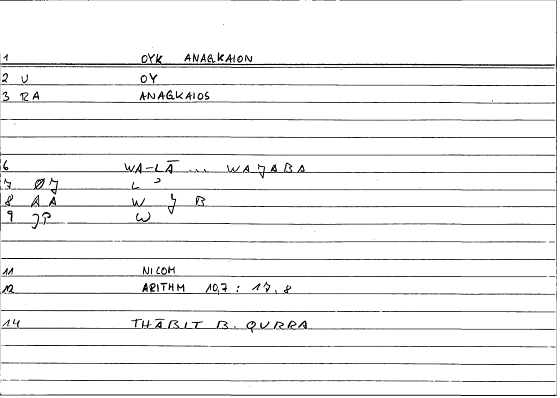 1 OYK ANAGKAION
2 U OY
3 RA ANAGKAIOS
6 WA-LĀ ... WAJABA
7 ØJ L'
8 AA W J B
9 JP W
11 NICOM
12 ARITHM 10,7 : 17,8
14 THĀBIT B. QURRA